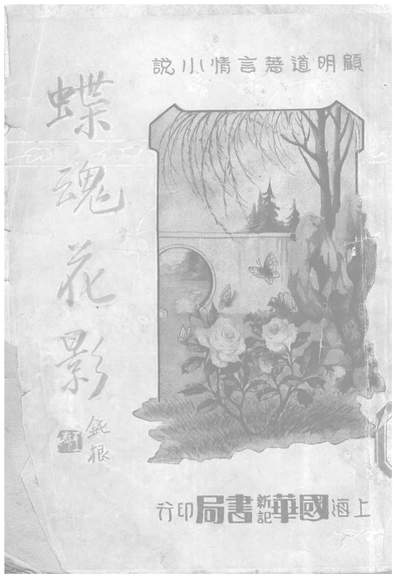 顧明道著言情小說
蝶魂花影
鈍根
上海國華新記書局印行